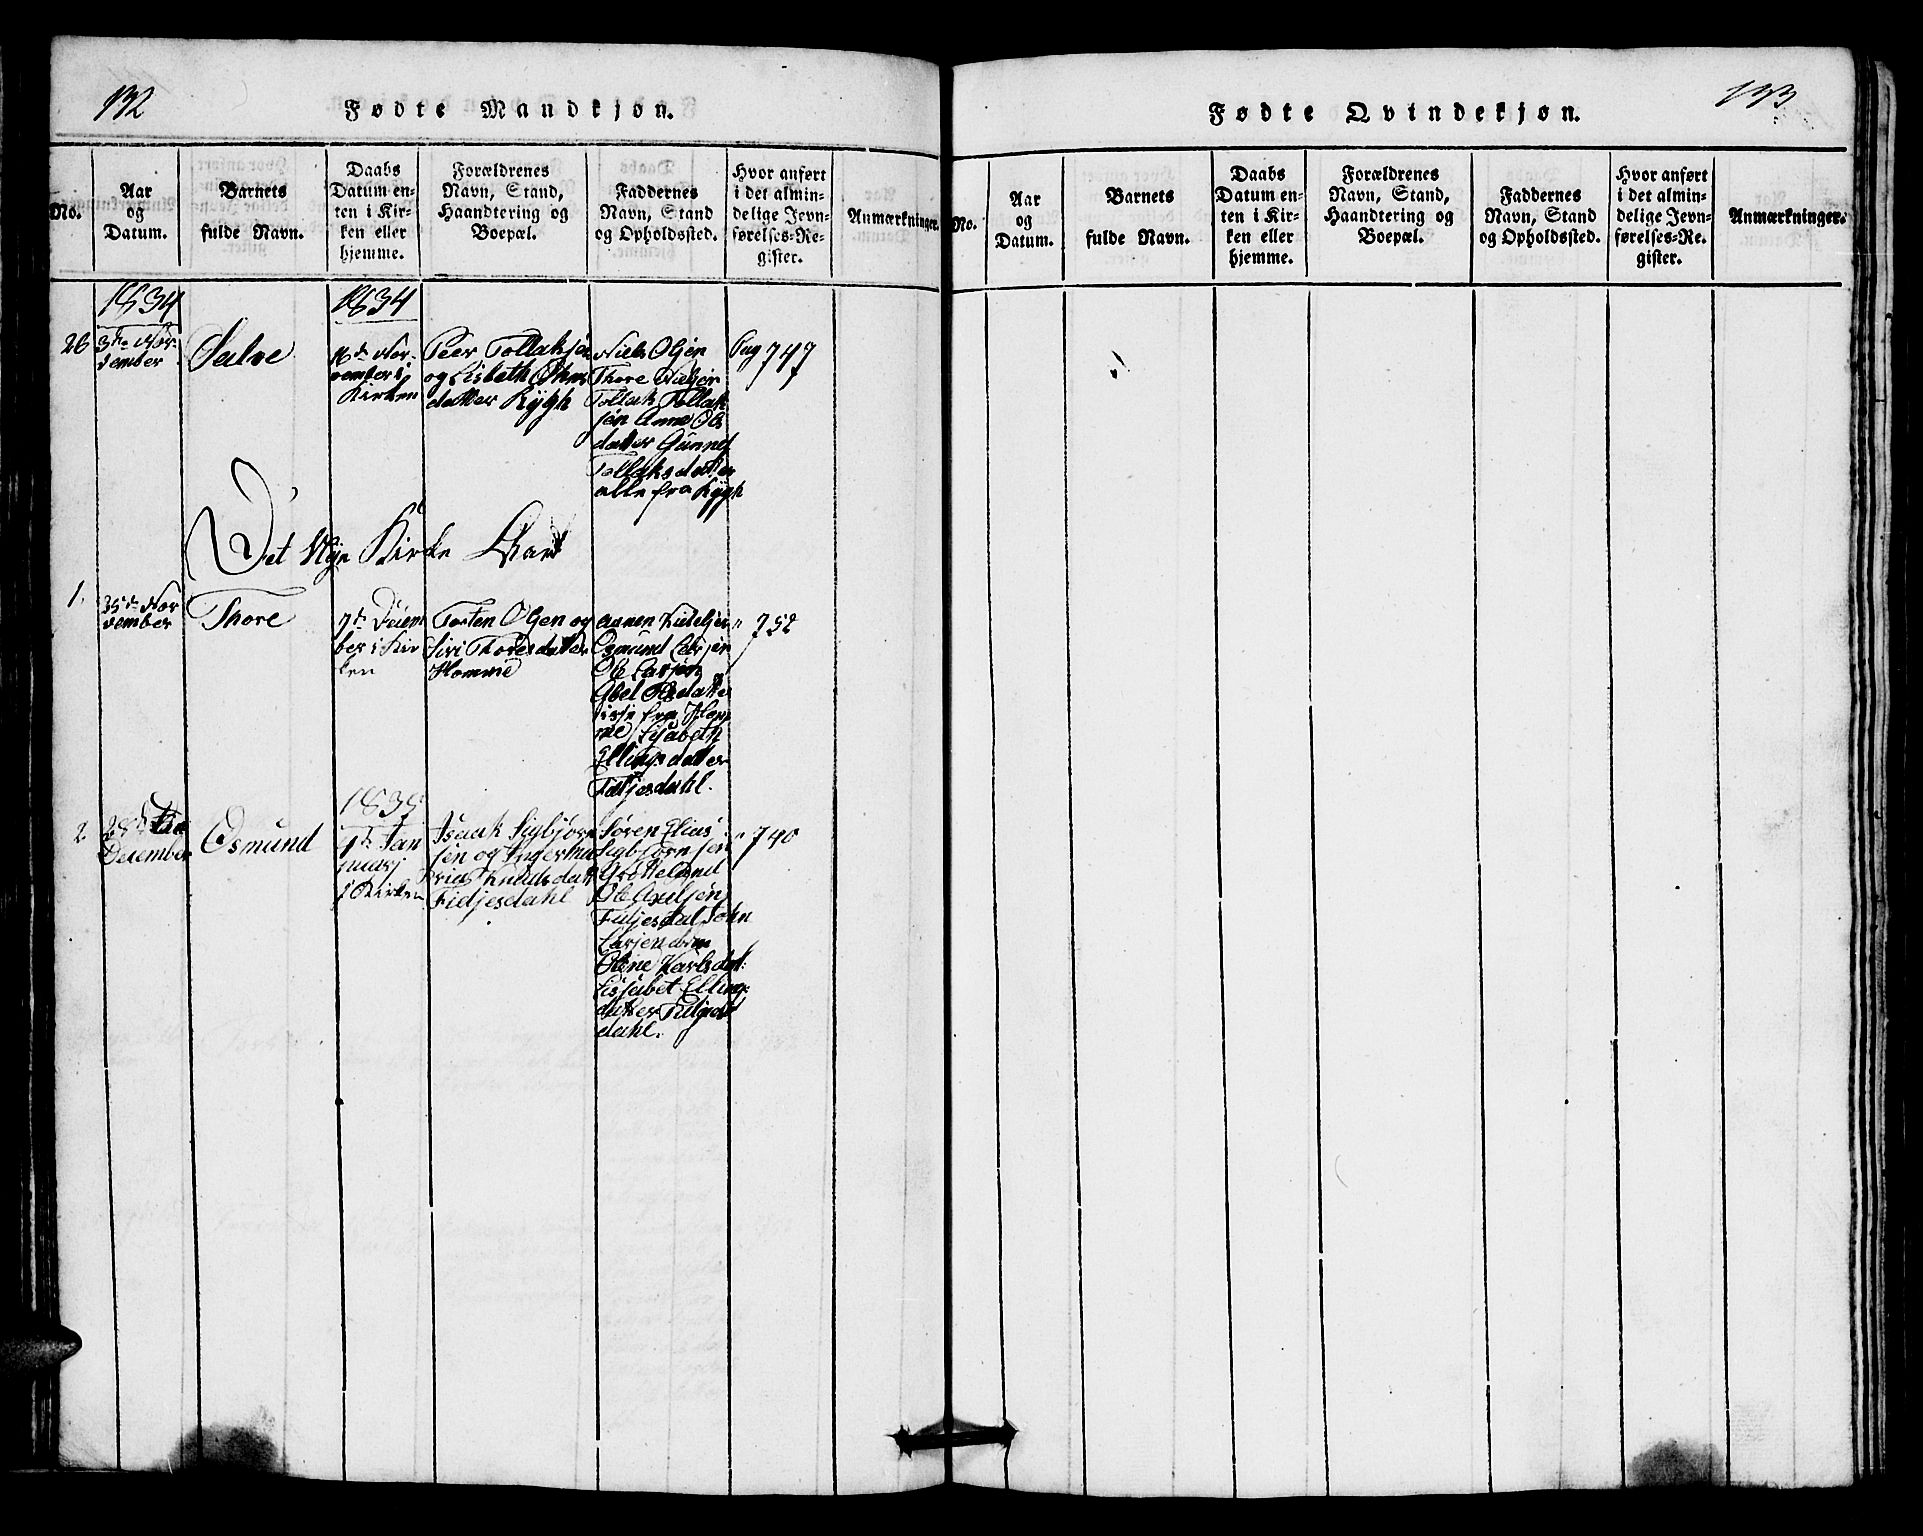 132
Fødte Mandkjøn.
No.
Aar
og
Datum.
Barnets
fulde Navn.
Daabs
Datum en-
ten i Kir-
ken eller
hjemme.
Forældrenes
Navn, Stand,
Haandtering og
Boepæl.
Faddernes
Navn, Stand
og Opholdssted.
Hvor anført
i det almin-
delige Jevn-
førelses-Re-
gister.
Anmærkninger.
1834
26
3die Nov-
vember
Salve
1834
16de Nov-
vember i
Kirken
Peer Tollaksen
og Lisbeth
datter Rygh
Niels Olsen
Thore Nielsen
Tollak Tollak
sen Anne Ols
datter Gunnel
Tollaksdatter
alle fra Rygh
Pag 747
Det Nye Kirke Aar
1.
25de Nov
vember
Thore
7de Decem
ber i Kir
ken
Torten Olsen og
Siri Thoresdatter
Homme
Omund Larsen
Ole Larsen
Abel
fra Hom
me Lisabeth
Ellingsdatter
Fidjesdahl.
" 752
2
28de
December
Osmund
1835
4de Jan
uarj
i Kirken
Isaak Sigbjørn
sen og Inger Ma
ria Knudsdatt
Fidjesdahl
Søren Elias
Sigbjørnsen
Grotteland
Ole Axelsen
Fidjesdal John
Larsen
Oline Karlsdat:
Lisjabet Elling:
datter Fidjes
dahl.
" 740
133
Fødte Qvindekjøn.
No.
Aar
og
Datum.
Barnets
fulde Navn.
Daabs
Datum en-
ten i Kir-
ken eller
hjemme.
Forældrenes
Navn, Stand,
Haandtering og
Boepæl.
Faddernes
Navn, Stand
og Opholdssted.
Hvor anført
i det almin-
delige Jevn-
førelses-Re-
gister.
Anmærkninger.